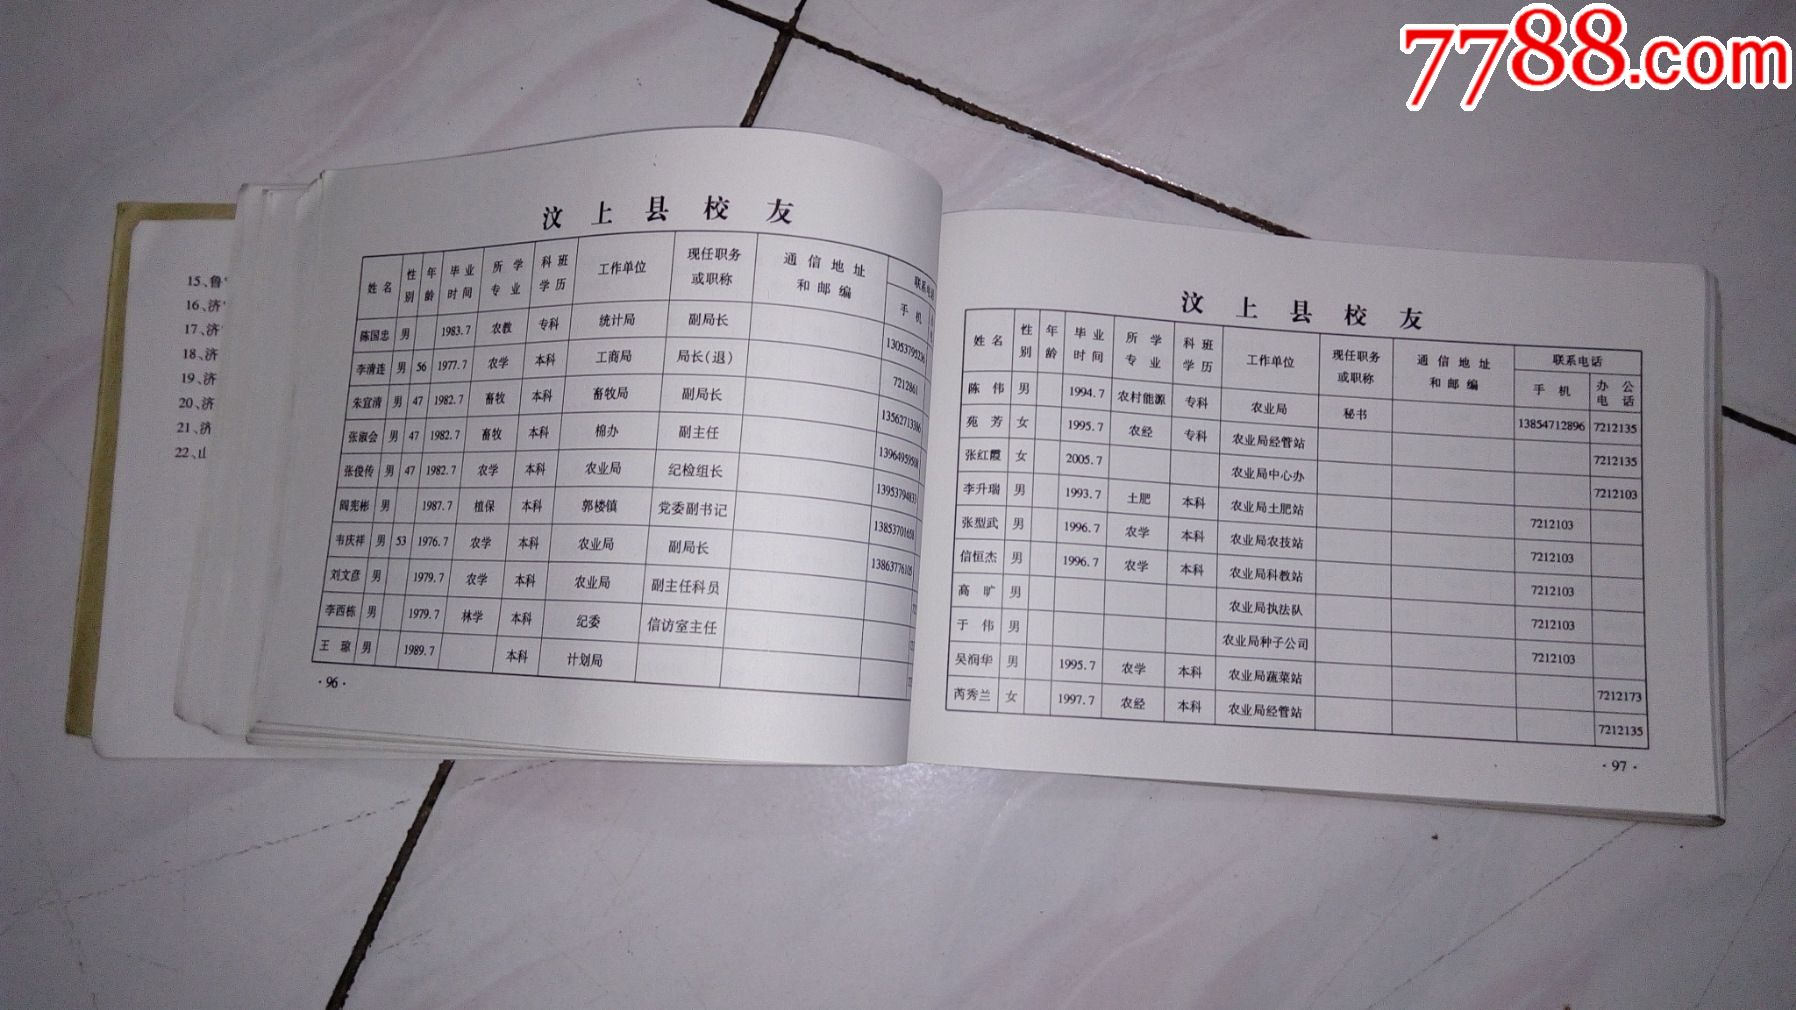 7788.com
15、鲁
16、济
17、济
18、济
19、济
20、济
21、济
22、山
汶上县校友
姓名 性别 年龄 毕业时间 所学专业 科班学历 工作单位 现任职务或职称 通信地址和邮编 联系电话 手机
陈国忠 男 1983.7 农教 专科 统计局 副局长 13053795236
李清连 男 56 1977.7 农学 本科 工商局 局长(退) 7212861
朱宜清 男 47 1982.7 畜牧 本科 畜牧局 副局长 13562713386
张淑会 男 47 1982.7 畜牧 本科 棉办 副主任 13964959508
张俊传 男 47 1982.7 农学 本科 农业局 纪检组长 13953794833
阎宪彬 男 1987.7 植保 本科 郭楼镇 党委副书记 13853701658
韦庆祥 男 53 1976.7 农学 本科 农业局 副局长 13863776105
刘文彦 男 1979.7 农学 本科 农业局 副主任科员
李西栋 男 1979.7 林学 本科 纪委 信访室主任
王琼 男 1989.7 本科 计划局
·96·
汶上县校友
姓名 性别 年龄 毕业时间 所学专业 科班学历 工作单位 现任职务或职称 通信地址和邮编 联系电话 手机 办公电话
陈伟 男 1994.7 农村能源 专科 农业局 秘书 13854712896 7212135
苑芳 女 1995.7 农经 专科 农业局经管站 7212135
张红霞 女 2005.7 农业局中心办 7212103
李升瑞 男 1993.7 土肥 本科 农业局土肥站 7212103
张型武 男 1996.7 农学 本科 农业局农技站 7212103
信恒杰 男 1996.7 农学 本科 农业局科教站 7212103
高旷 男 农业局执法队 7212103
于伟 男 农业局种子公司 7212103
吴润华 男 1995.7 农学 本科 农业局蔬菜站 7212173
芮秀兰 女 1997.7 农经 本科 农业局经管站 7212135
·97·